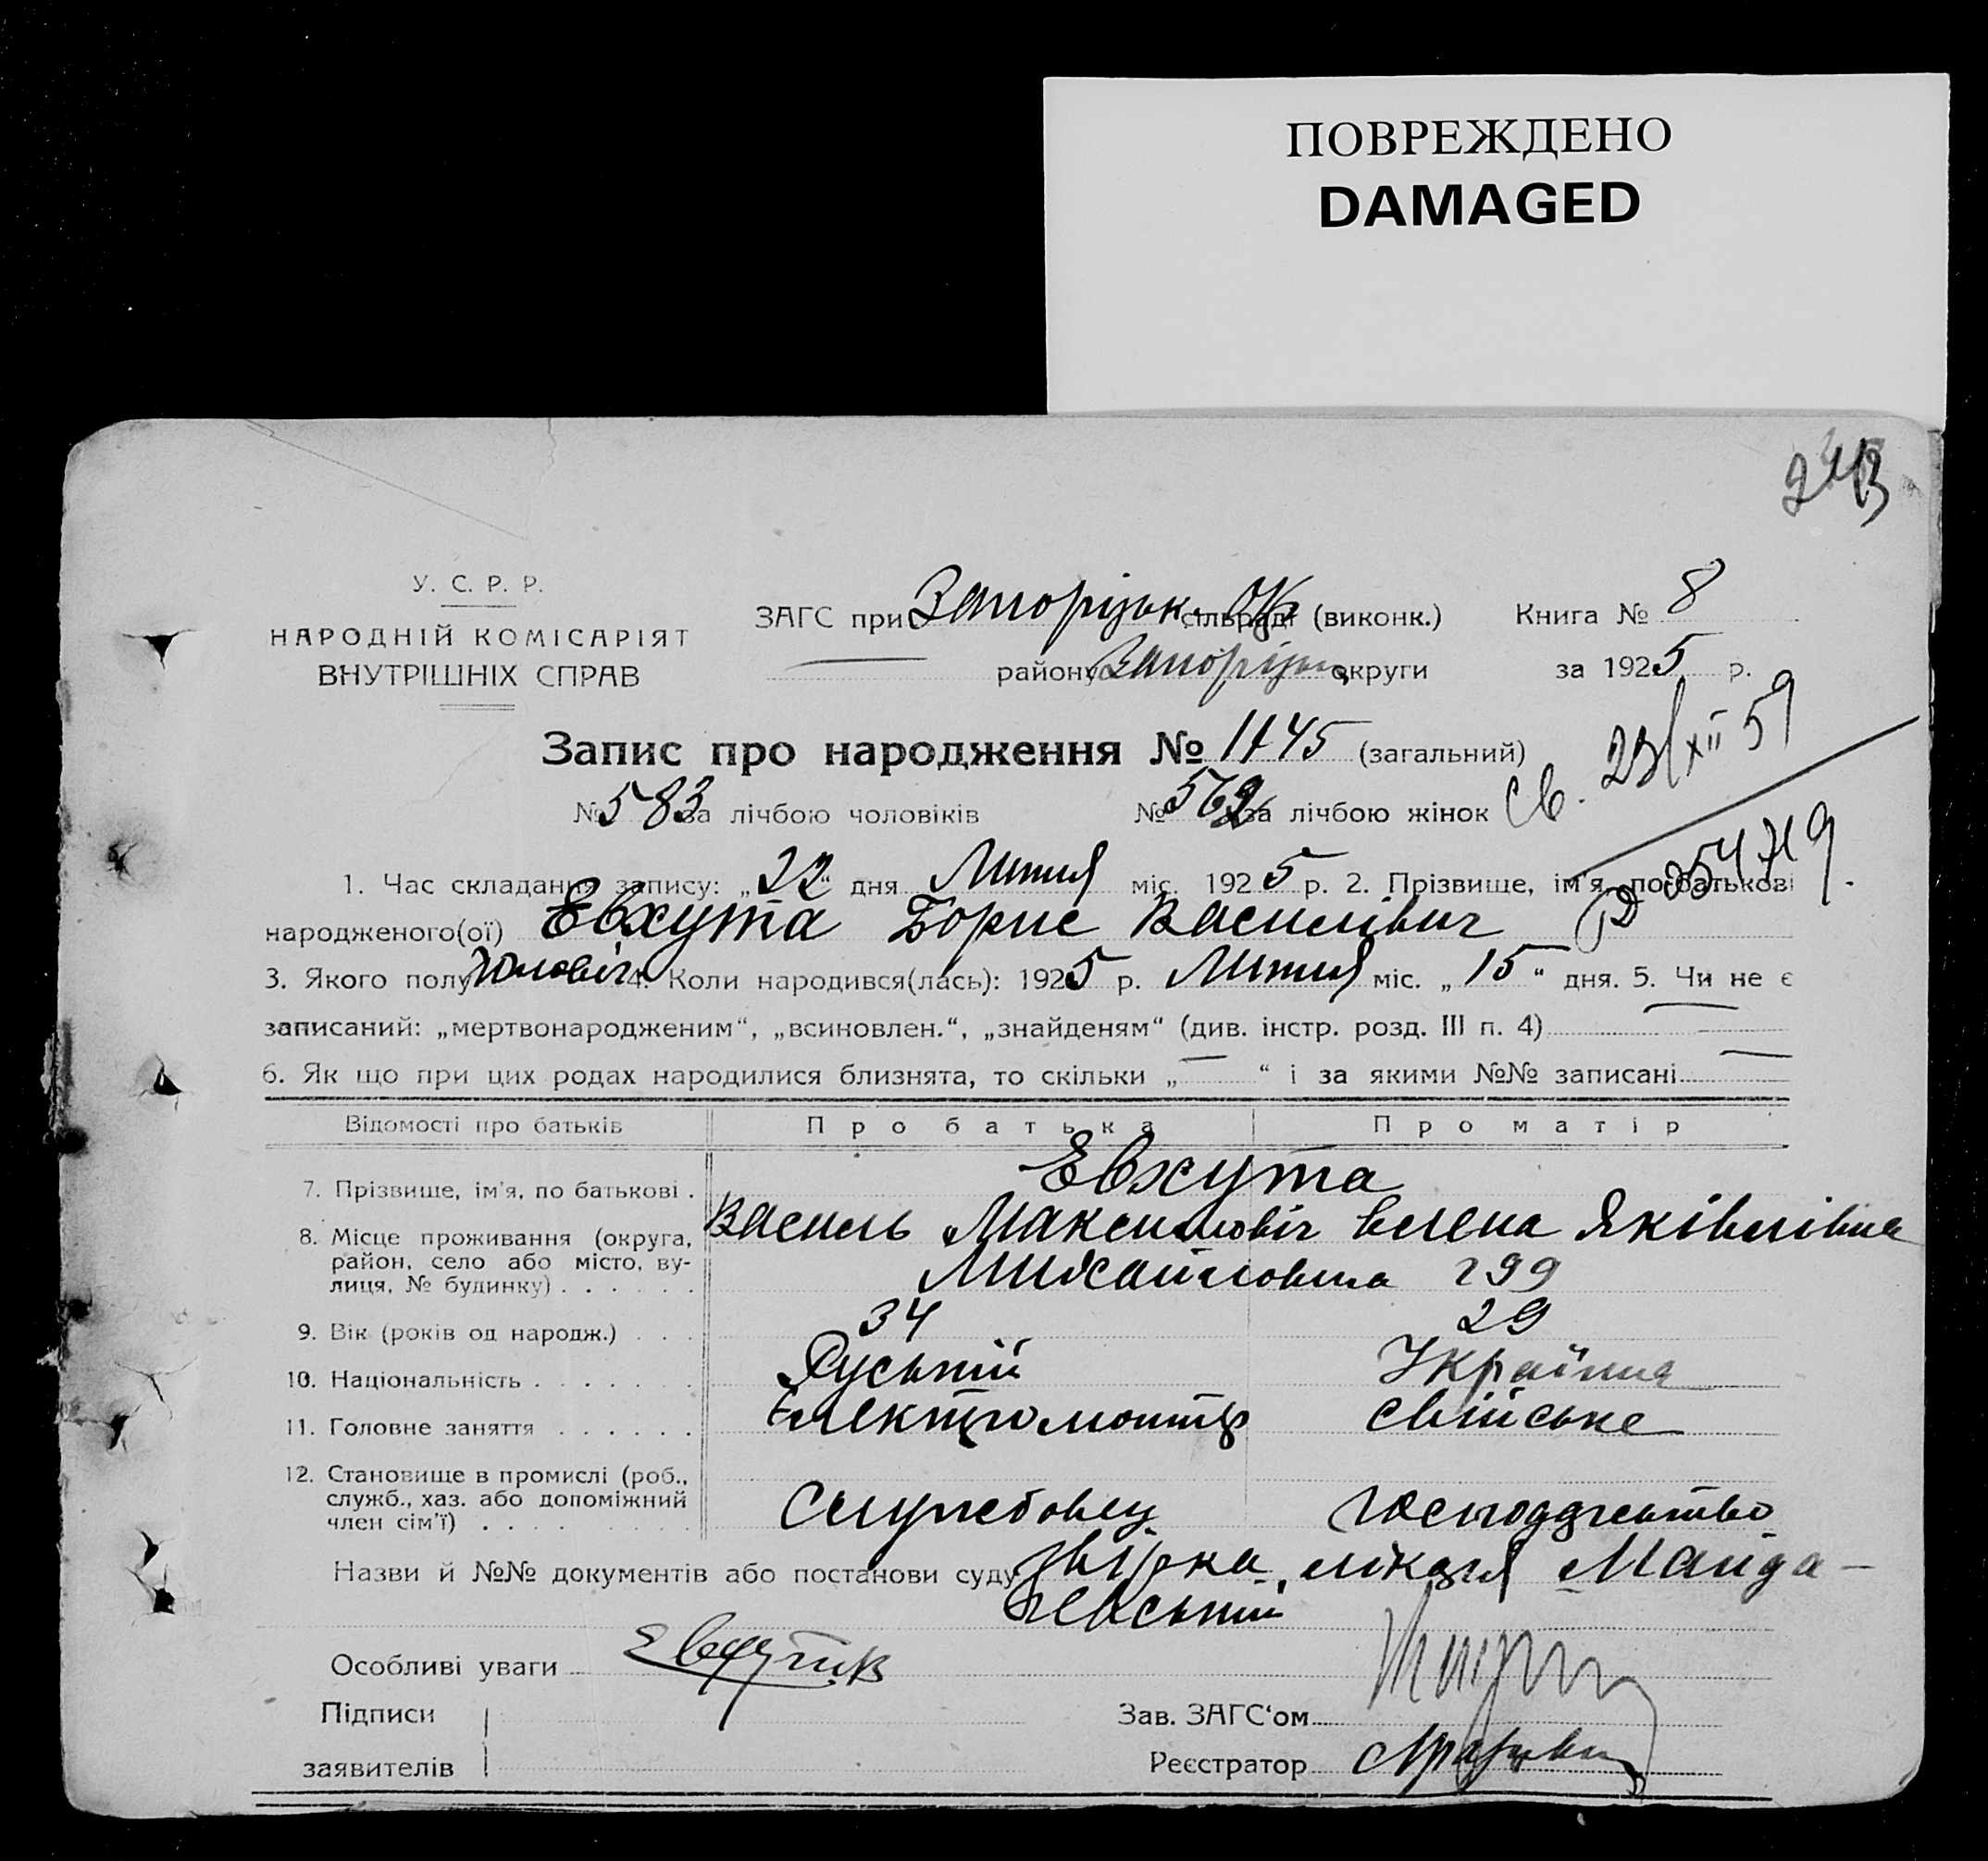 ПОВРЕЖДЕНО
DAMAGED
У. С. Р. Р.
НАРОДНІЙ КОМІСАРІЯТ
ВНУТРІШНІХ СПРАВ
ЗАГС при Запорізьк. Ок сільраді (виконк.) Книга № 8
району Запорізьк. округи за 1925 р.
Запис про народження № 1145 (загальний)
№ 583 за лічбою чоловіків № 562 за лічбою жінок
Св. 23/XII 59
1. Час складання запису: „22“ дня Липня міс. 1925 р. 2. Прізвище, ім'я, по батькові
народженого(ої) Евхута Борис Василівич
3. Якого полу Чоловіч. 4. Коли народився(лась): 1925 р. Липня міс. „15“ дня. 5. Чи не є
записаний: „мертвонародженим“, „всиновлен.“, „знайденям“ (див. інстр. розд. III п. 4)
6. Як що при цих родах народилися близнята, то скільки „—“ і за якими №№ записані —
Відомості про батьків Про батька Про матір
7. Прізвище, ім'я, по батькові . Евхута
Василь Максимовіч Елена Яківлівна
8. Місце проживання (округа, район, село або місто, вулиця, № будинку) . . . . . . Михайловська 299
9. Вік (років од народж.) . . . 34 29
10. Національність . . . . . . . Руський Українка
11. Головне заняття . . . . . . Електромонтер свійське
12. Становище в промислі (роб., служб., хаз. або допоміжний член сім'ї) . . . . Службовец господарство
Назви й №№ документів або постанови суду Звірка лікаря Майда-
чевський
Особливі уваги
Підписи
заявителів
Зав. ЗАГС‘ом
Реєстратор